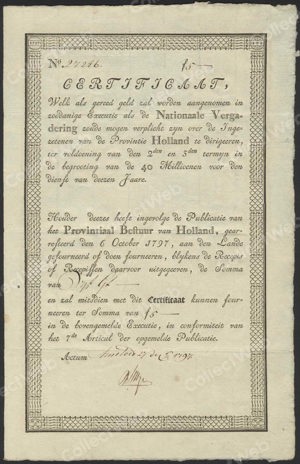 No. 27216. f5 —
CERTIFICAAT,
Welk als gereed geld zal worden aangenomen in
zodanige Executie als de Nationaale Verga-
dering zoude mogen verplicht zyn over de Inge-
zetenen van de Provintie Holland te dirigeeren,
ter voldoening van den 2den en 3den termyn in
de begrooting van de 40 Millioenen voor den
dienst van deezen Jaare.
Houder deezes heeft ingevolge de Publicatie van
het Provintiaal Bestuur van Holland, gear-
resteerd den 6 October 1797, aan den Lande
gefourneerd of doen fourneeren, blykens de Recepis
of Recepissen daarvoor uitgegeven, de Somma
van Vyf
en zal mitsdien met dit Certificaat kunnen four-
neeren ter Somma van f5 —
in de bovengemelde Executie, in conformiteit van
het 7de Articul der opgemelde Publicatie.
Actum